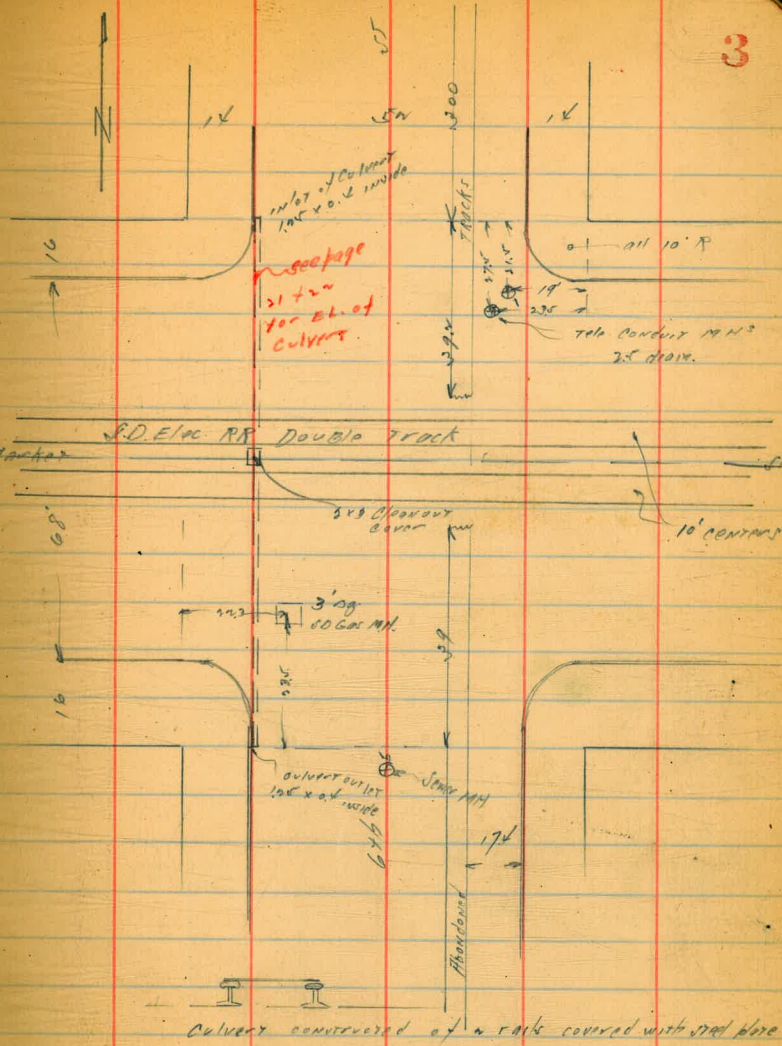 3
N
14
52
300
14
Inlet of Culvert
1.25 x 0.4 inside
TRACKS
16
see page
21 + 22
for El. of
Culvert
27.5
21.5
all 10' R
19'
23.5
39.2
Tele. Conduit M.H.s
2.5 diam.
S.D. Elec. RR Double Track
Market
3x3 Cleanout
Cover
10' Centers
68'
22.3
3' sq
SD Gas M.H.
39
23.5
16
Culvert outlet
1.25 x 0.4
inside
Sewer MH
6th
17.4
Abandoned
Culvert constructed of 2 rails covered with steel plate